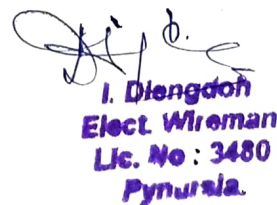 I. Dlengdoh
Elect. Wireman
Lic. No : 3480
Pynursla.